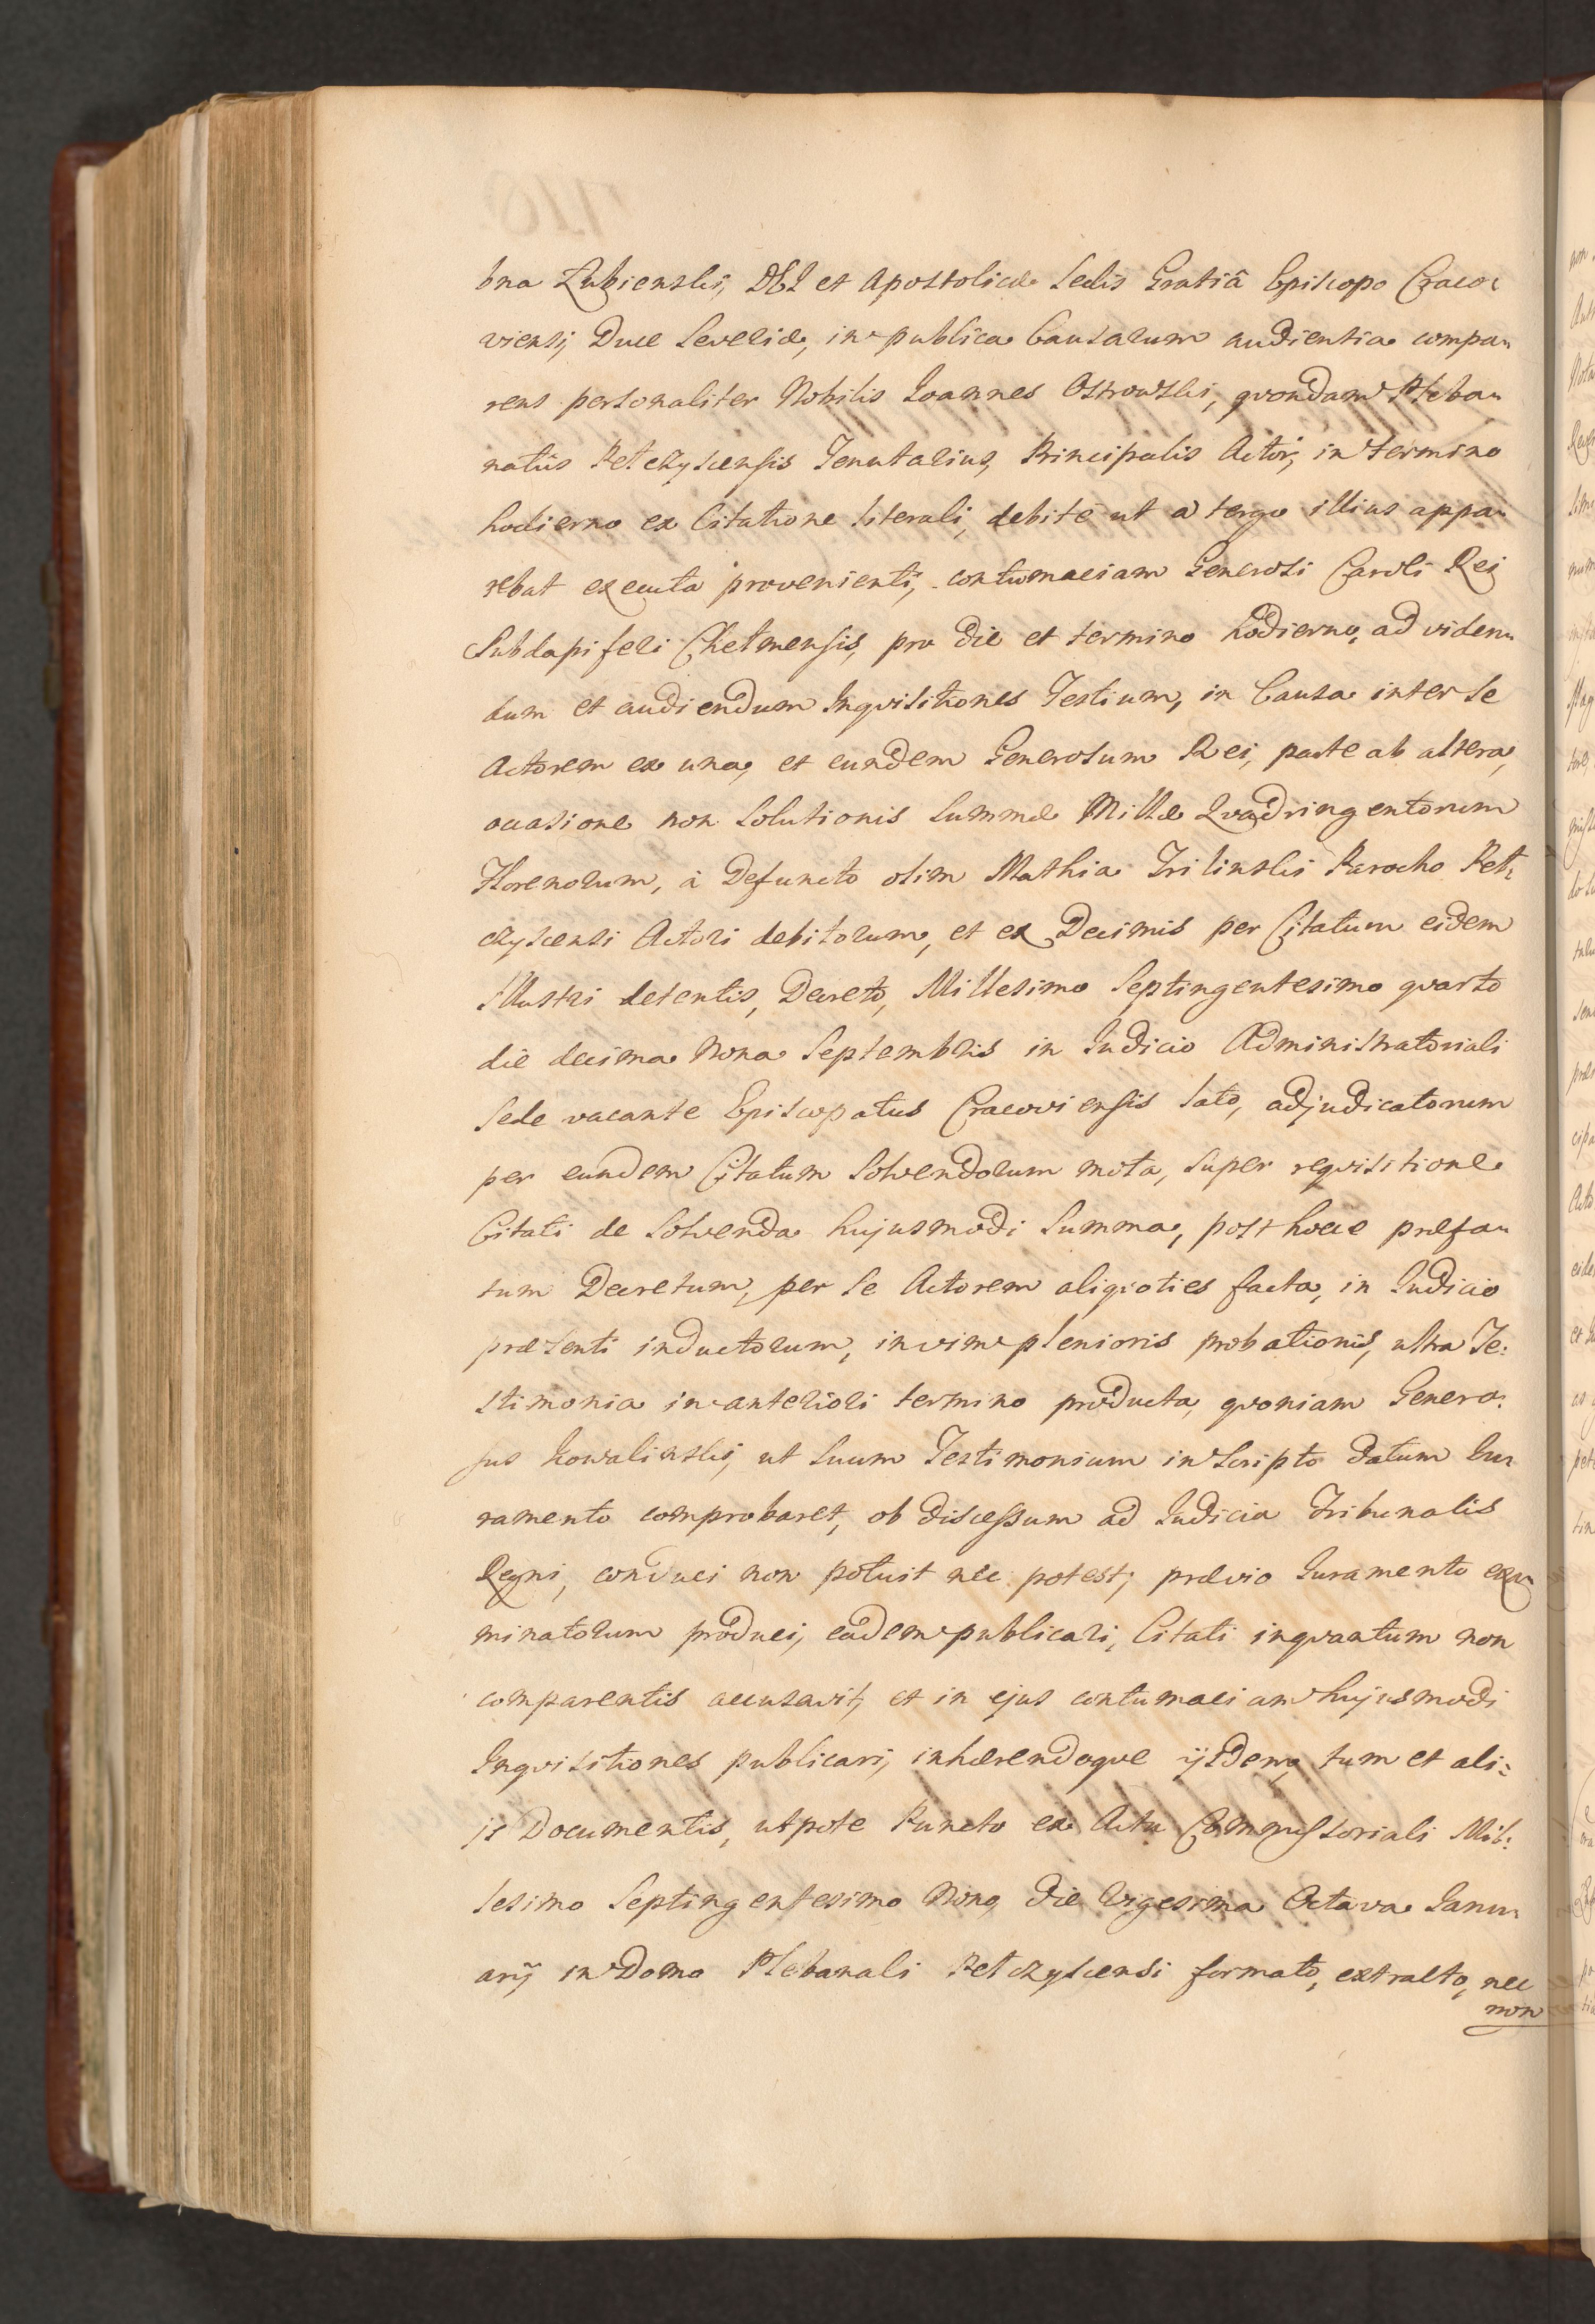 bna Łubienski, DEI et Apostolicæ Sedis Gratiâ Episcopo Craco-
viensi, Duce Severiæ, in publica Causarum audientia compa-
rens personaliter Nobilis Joannes Ostrowski, qvondam Pleba-
natûs Pełczyscensis Tenutarius, Principalis Actor, in termino
hodierno ex Citatione literali, debitè ut a tergo illius appa-
rebat executa provenienti, contumaciam Generosi Caroli Rej
Subdapiferi Chełmensis, pro die et termino hodierno, ad viden-
dum et audiendum Inqvisitiones Testium, in Causa inter se
Actorem ex una, et eundem Generosum Rej, parte ab altera,
occasione non Solutionis Summæ Mille Qvadringentorum
Florenorum, à Defuncto olim Mathia Trilinski Parocho Peł-
czyscensi Actori debitorum, et ex Decimis per Citatum eidem
Illustri detentis, Decreto, Millesimo Septingentesimo qvarto
die decima Nona Septembris in Judicio Administratoriali
Sede vacante Episcopatus Cracoviensis lato, adjudicatorum
per eundem Citatum Solvendorum mota, super reqvisitione
Citati de Solvenda hujusmodi Summa, post hocce præfa-
tum Decretum, per Se Actorem aliqvoties facta, in Judicio
præsenti inductorum, in vim plenioris probationis, ultra Te:
stimonia in anteriori termino producta, qvoniam Genero:
sus Kowalinski, ut Suum Testimonium in Scripto datum Ju-
ramento comprobaret, ob discessum ad Judicia Tribunalis
Regni, conduci non potuit nec potest, prævio Juramento exa-
minatorum produci, eadem publicari, Citati inqvantum non
comparentis accusavit, et in ejus contumaciam hujusmodi
Inqvisitiones publicari, inhærendoqve ijsdem, tum et ali:
js Documentis, utpote Puncto ex Actu Commissoriali Mil:
lesimo Septingentesimo Nono, die Vigesima Octava Janu-
arij in Domo Plebanali Pełczyscensi formato, extracto, nec
non